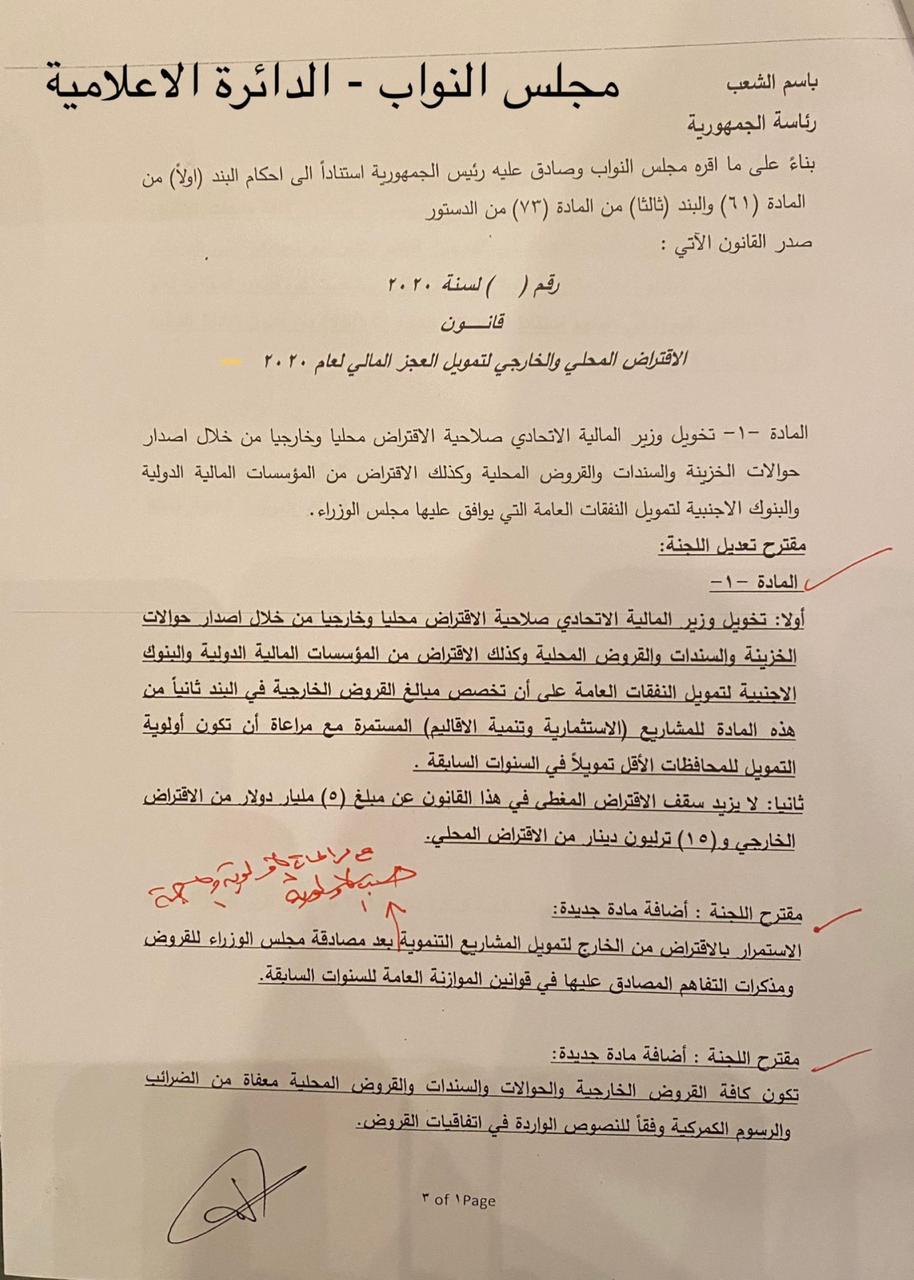 مجلس النواب - الدائرة الاعلامية
باسم الشعب
رئاسة الجمهورية
بناءً على ما اقره مجلس النواب وصادق عليه رئيس الجمهورية استناداً الى احكام البند (اولاً) من
المادة (٦١) والبند (ثالثا) من المادة (٧٣) من الدستور
صدر القانون الآتي :
رقم ( ) لسنة ٢٠٢٠
قانـــون
الاقتراض المحلي والخارجي لتمويل العجز المالي لعام ٢٠٢٠
المادة -١- تخويل وزير المالية الاتحادي صلاحية الاقتراض محليا وخارجيا من خلال اصدار
حوالات الخزينة والسندات والقروض المحلية وكذلك الاقتراض من المؤسسات المالية الدولية
والبنوك الاجنبية لتمويل النفقات العامة التي يوافق عليها مجلس الوزراء.
مقترح تعديل اللجنة:
المادة -١-
أولا: تخويل وزير المالية الاتحادي صلاحية الاقتراض محليا وخارجيا من خلال اصدار حوالات
الخزينة والسندات والقروض المحلية وكذلك الاقتراض من المؤسسات المالية الدولية والبنوك
الاجنبية لتمويل النفقات العامة على أن تخصص مبالغ القروض الخارجية في البند ثانياً من
هذه المادة للمشاريع (الاستثمارية وتنمية الاقاليم) المستمرة مع مراعاة أن تكون أولوية
التمويل للمحافظات الأقل تمويلاً في السنوات السابقة .
ثانيا: لا يزيد سقف الاقتراض المغطى في هذا القانون عن مبلغ (٥) مليار دولار من الاقتراض
الخارجي و(١٥) ترليون دينار من الاقتراض المحلي.
حسب الاولوية
مقترح اللجنة : أضافة مادة جديدة:
الاستمرار بالاقتراض من الخارج لتمويل المشاريع التنموية بعد مصادقة مجلس الوزراء للقروض
ومذكرات التفاهم المصادق عليها في قوانين الموازنة العامة للسنوات السابقة.
مقترح اللجنة : أضافة مادة جديدة:
تكون كافة القروض الخارجية والحوالات والسندات والقروض المحلية معفاة من الضرائب
والرسوم الكمركية وفقاً للنصوص الواردة في اتفاقيات القروض.
٣ of ١Page